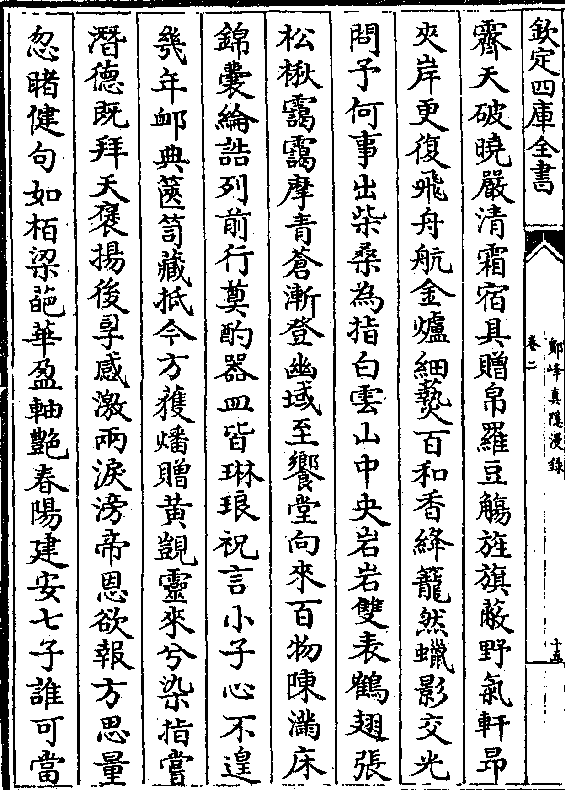 欽定四庫全書
鄮峰真隱漫錄
卷二
十五
霽天破曉嚴清霜宿具贈帛羅豆觴旌旗蔽野氣軒昂
夾岸更復飛舟航金爐細爇百和香絳籠然蠟影交光
問予何事出柴桑為指白雲山中央岩岩雙表鶴翅張
松楸靄靄摩青蒼漸登幽域至饗堂向來百物陳滿床
錦囊綸誥列前行奠酌器皿皆琳琅祝言小子心不遑
幾年卹典篋笥藏抵今方獲燔贈黄覬靈來兮染指嘗
潛德既拜天褒揚後孚感激兩淚滂帝恩欲報方思量
忽睹健句如栢梁葩華盈軸艷春陽建安七子誰可當